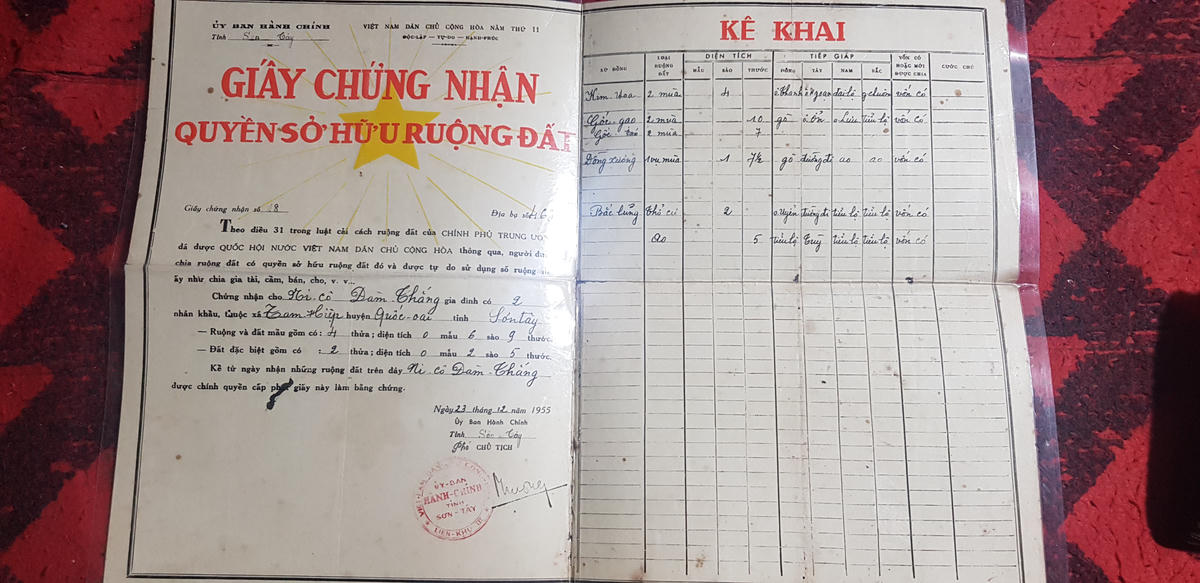 ỦY BAN HÀNH CHÍNH
Tỉnh Sơn Tây
VIỆT NAM DÂN CHỦ CỘNG HÒA NĂM THỨ 11
ĐỘC-LẬP — TỰ-DO — HẠNH-PHÚC
GIẤY CHỨNG NHẬN
QUYỀN SỞ HỮU RUỘNG ĐẤT
Giấy chứng nhận số 18
Địa bạ số 46
Theo điều 31 trong luật cải cách ruộng đất của CHÍNH PHỦ TRUNG ƯƠN
đã được QUỐC HỘI NƯỚC VIỆT NAM DÂN CHỦ CỘNG HÒA thông qua, người đượ
chia ruộng đất có quyền sở hữu ruộng đất đó và được tự do sử dụng số ruộng
ấy như chia gia tài, cầm, bán, cho, v. v...
Chứng nhận cho Ni cô Đàm Thắng gia đình có 2
nhân khẩu, thuộc xã Tam Hiệp huyện Quốc-oai tỉnh Sơn tây
— Ruộng và đất mầu gồm có: 4 thửa; diện tích 0 mẫu 6 sào 9 thước.
— Đất đặc biệt gồm có : 2 thửa; diện tích 0 mẫu 2 sào 5 thước.
Kể từ ngày nhận những ruộng đất trên đây Ni cô Đàm Thắng
được chính quyền cấp giấy này làm bằng chứng.
Ngày 23 tháng 12 năm 1955
Ủy Ban Hành Chính
Tỉnh Sơn Tây
Phó CHỦ TỊCH
ỦY-BAN
HÀNH-CHÍNH
TỈNH
SƠN-TÂY
LIÊN-KHU
KÊ KHAI
XỨ ĐỒNG LOẠI RUỘNG ĐẤT DIỆN TÍCH TIẾP GIÁP VỐN CÓ HOẶC MỚI ĐƯỢC CHIA CƯỚC CHÚ
MẪU SÀO THƯỚC ĐÔNG TÂY NAM BẮC
Kim hoa 2 mùa 4 ô Thanh đại lộ vốn có
Gốc gạo 2 mùa 10 gò ô ổn o Lưu tiểu lộ vốn có
Gốc 2 mùa 7
Đồng xuống 1 vụ mùa 1 7½ gò đường đi ao ao vốn có
Bắc lủng Thổ cư 2 o. Uyển đường đi tiểu lộ tiểu lộ vốn có
ao 5 tiểu lộ tiểu lộ tiểu lộ vốn có